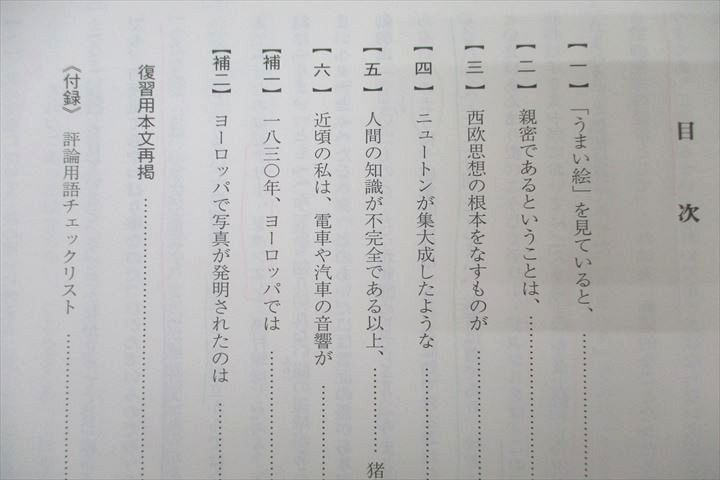 目次
【一】「うまい絵」を見ていると、……………………
【二】親密であるということは、……………………
【三】西欧思想の根本をなすものが……………………
【四】ニュートンが集大成したような……………………
【五】人間の知識が不完全である以上、……………………猪
【六】近頃の私は、電車や汽車の音響が……………………
【補一】一八三〇年、ヨーロッパでは……………………
【補二】ヨーロッパで写真が発明されたのは……………………
復習用本文再掲……………………
《付録》評論用語チェックリスト……………………